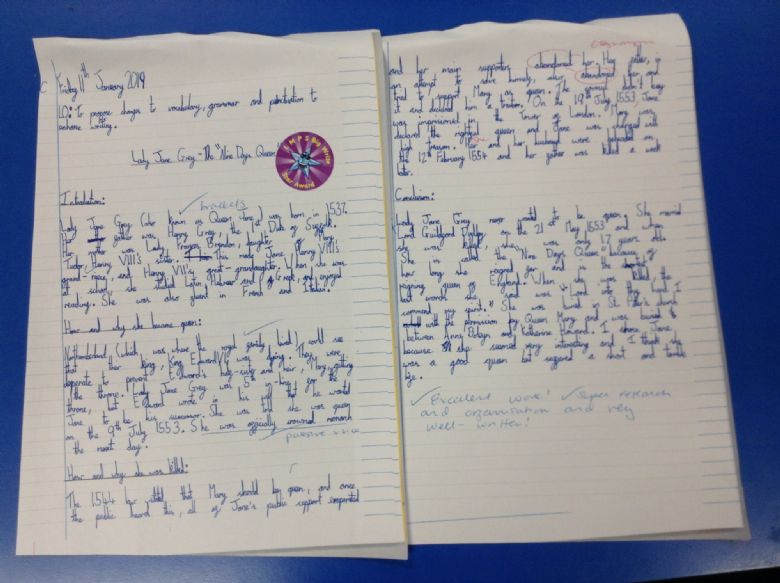 Friday 11th January 2019
LO: To propose changes to vocabulary, grammar and punctuation to
enhance writing.
Lady Jane Grey - The "Nine Days Queen"
EMPS Big Writer
Star Award
Introduction:
brackets
Lady Jane Grey (also known as Queen Jane) was born in 1537.
Her father was Henry Grey, the Duke of Suffolk.
Her mother was Lady Frances Brandon, daughter of
Tudor, Henry VIII's sister. This made Jane Henry VIII's
grand-niece, and Henry VII's great-granddaughter. When she was
at school, she studied Latin, Hebrew and Greek, and enjoyed
reading. She was also fluent in French and Italian.
How and why she became queen:
Northumberland (which was where the royal family lived) could see
that their king, King Edward VI was dying. They were
desperate to prevent Edward's half-sister and heir, Mary, getting
the throne. Lady Jane Grey was 5th in-line for the
throne, but Edward wrote in his will that he would
Jane to be his successor. She was told she was queen
on the 9th July 1553. She was officially crowned monarch
the next day.
passive voice
How and why she was killed:
The 1544 law that Mary should be queen, and once
the public heard this, all of Jane's public support evaporated
and her main supporters abandoned her. Her father, in
an attempt to save himself, also abandoned her and
that he support Mary as queen. The council didn't buy
it and declared him a traitor. On the 19th July 1553, Jane
was imprisoned in the Tower of London. Mary was
declared the rightful queen and Jane was charged with
high treason. Her and her husband were beheaded on
the 12th February 1554 and her father was killed a week
later.
Conclusion:
Lady Jane Grey never wanted to be queen. She married
Lord Guildford Dudley on the 21st May 1553 and when
she was killed she was only 17 years old.
She is called the "Nine Days Queen" because of
how long she reigned for and is the shortest
reigning queen of England. When she was killed, the
last words she said was "Lord, into thy hands I
commend my spirit." She was buried in St. Peter's church
with the permission of Queen Mary and was buried
between Anne Boleyn and Katherine Howard. I chose Jane
because she seemed very interesting and I think she
was a good queen but suffered a short and terrible
life.
Excellent work! Super research
and organisation and very
well-written!